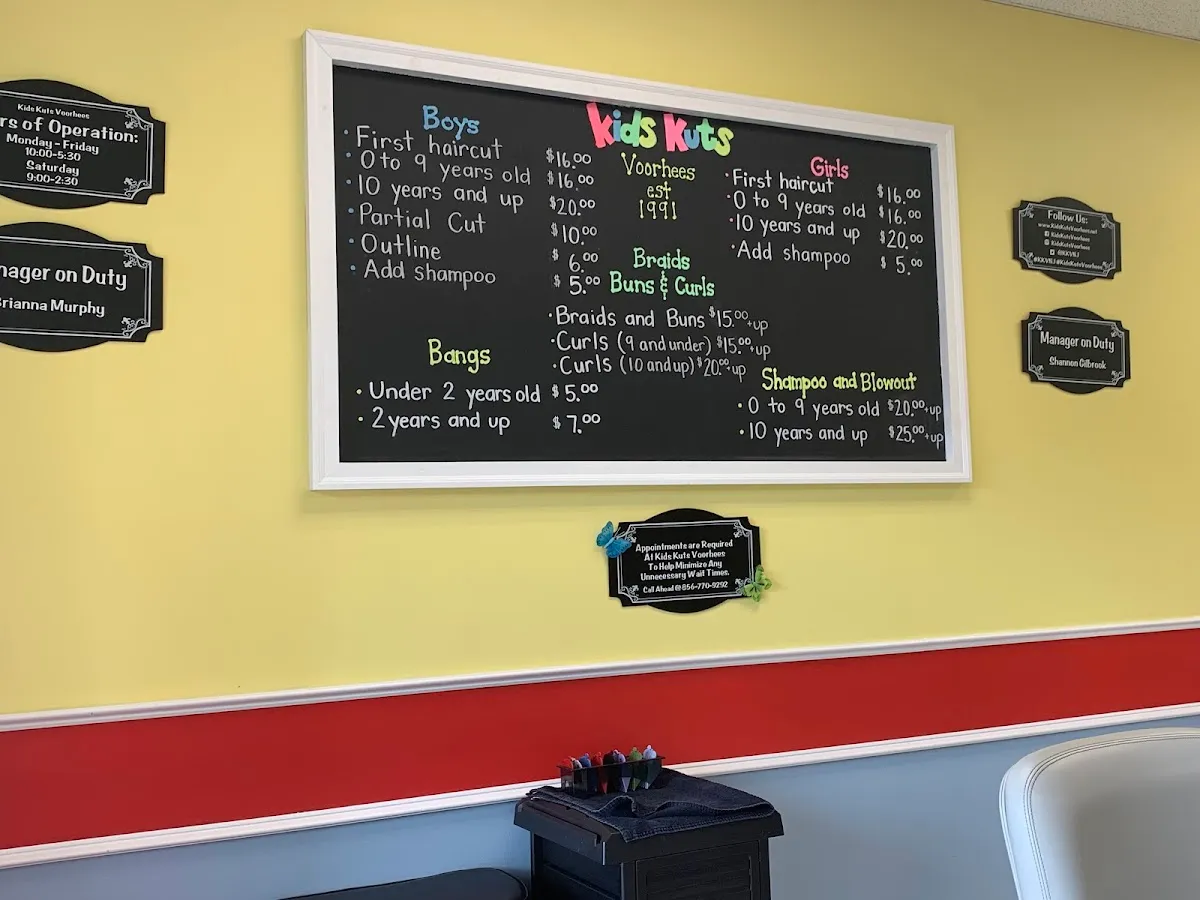 Kids Kuts Voorhees
rs of Operation:
Monday - Friday
10:00-5:30
Saturday
9:00-2:30
nager on Duty
rianna Murphy
Kids Kuts
Voorhees
est
1991
Boys
· First haircut $16.00
· 0 to 9 years old $16.00
· 10 years and up $20.00
· Partial Cut $10.00
· Outline $6.00
· Add shampoo $5.00
Bangs
· Under 2 years old $5.00
· 2 years and up $7.00
Braids
Buns & Curls
· Braids and Buns $15.00+up
· Curls (9 and under) $15.00+up
· Curls (10 and up) $20.00+up
Girls
· First haircut $16.00
· 0 to 9 years old $16.00
· 10 years and up $20.00
· Add shampoo $5.00
Shampoo and Blowout
· 0 to 9 years old $20.00+up
· 10 years and up $25.00+up
Follow Us:
www.KidsKutsVoorhees.net
KidsKutsVoorhees
KidsKutsVoorhees
@KKVNJ
#KKVNJ #KidsKutsVoorhees
Manager on Duty
Shannon Gilbrook
Appointments are Required
At Kids Kuts Voorhees
To Help Minimize Any
Unnecessary Wait Times.
Call Ahead @ 856-770-9292